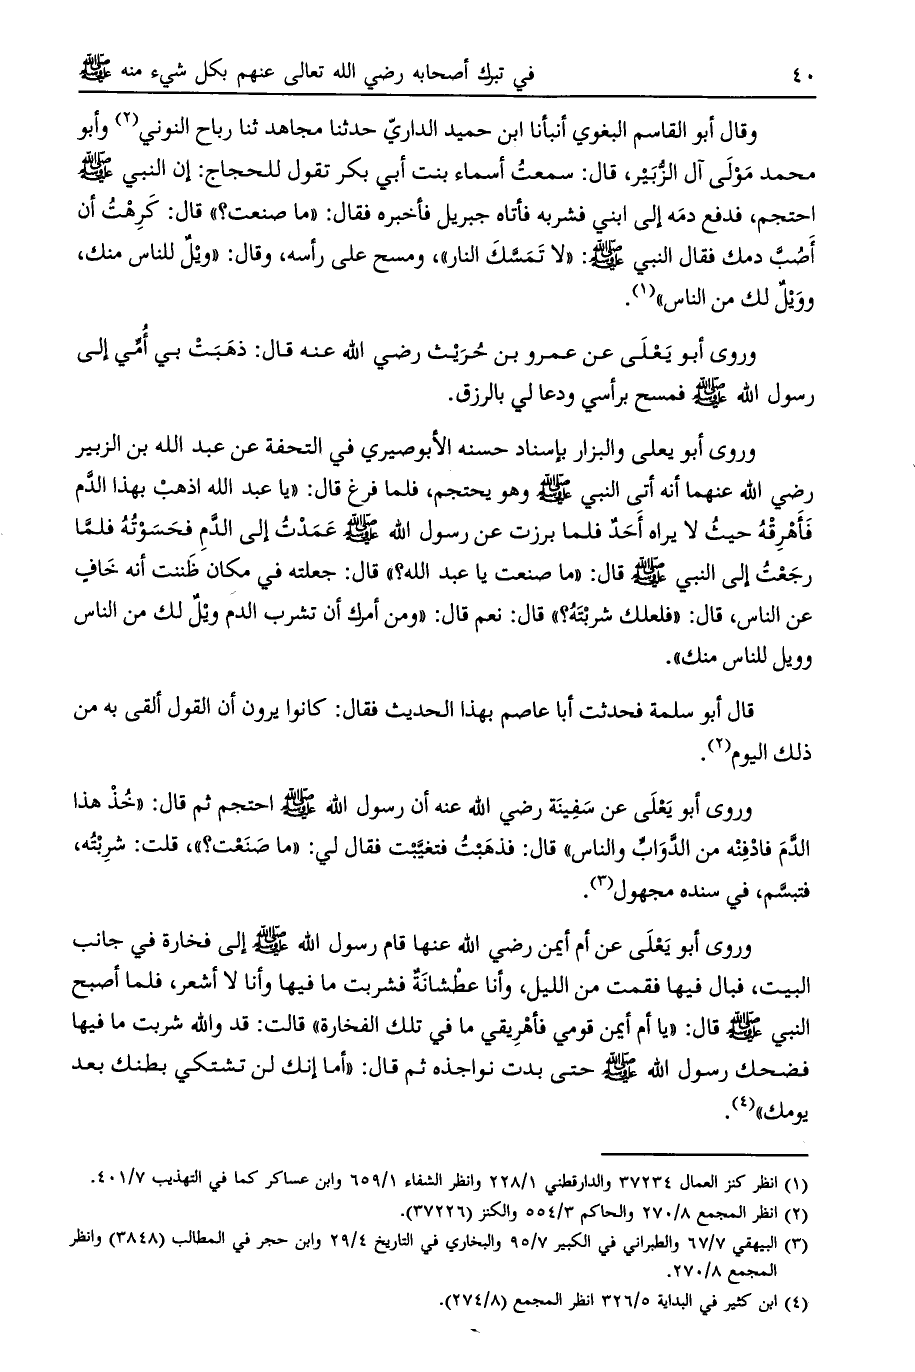 ٤٠ في تبرك أصحابه رضي الله تعالى عنهم بكل شيء منه ﷺ
وقال أبو القاسم البغوي أنبأنا ابن حميد الداريّ حدثنا مجاهد ثنا رباح النوني(٢) وأبو
محمد مَوْلَى آل الزُّبَيْر، قال: سمعتُ أسماء بنت أبي بكر تقول للحجاج: إن النبي ﷺ
احتجم، فدفع دمَه إلى ابني فشربه فأتاه جبريل فأخبره فقال: «ما صنعت؟» قال: كَرِهْتُ أن
أَصُبَّ دمك فقال النبي ﷺ: «لا تَمَسَّكَ النار»، ومسح على رأسه، وقال: «ويْلٌ للناس منك،
ووَيْلٌ لك من الناس»(١).
وروى أبو يَعْلَى عن عمرو بن حُرَيْث رضي الله عنه قال: ذهَبَتْ بي أُمِّي إلى
رسول الله ﷺ فمسح برأسي ودعا لي بالرزق.
وروى أبو يعلى والبزار بإسناد حسنه الأبوصيري في التحفة عن عبد الله بن الزبير
رضي الله عنهما أنه أتى النبي ﷺ وهو يحتجم، فلما فرغ قال: «يا عبد الله اذهبْ بهذا الدَّم
فَأَهْرِقْهُ حيثُ لا يراه أَحَدٌ فلما برزت عن رسول الله ﷺ عَمَدْتُ إلى الدَّمِ فحَسَوْتُهُ فلمَّا
رجَعْتُ إلى النبي ﷺ قال: «ما صنعت يا عبد الله؟» قال: جعلته في مكان ظَننت أنه خَافٍ
عن الناس، قال: «فلعلك شربْتَهُ؟» قال: نعم قال: «ومن أمرك أن تشرب الدم ويْلٌ لك من الناس
وويل للناس منك».
قال أبو سلمة فحدثت أبا عاصم بهذا الحديث فقال: كانوا يرون أن القول ألقى به من
ذلك اليوم(٢).
وروى أبو يَعْلَى عن سَفِينَة رضي الله عنه أن رسول الله ﷺ احتجم ثم قال: «خُذْ هذا
الدَّمَ فادْفِنْه من الدَّوَابِّ والناس» قال: فذهَبْتُ فتغيَّبْت فقال لي: «ما صَنَعْت؟»، قلت: شربْتُه،
فتبسَّم، في سنده مجهول(٣).
وروى أبو يَعْلَى عن أم أيمن رضي الله عنها قام رسول الله ﷺ إلى فخارة في جانب
البيت، فبال فيها فقمت من الليل، وأنا عطْشانَةٌ فشربت ما فيها وأنا لا أشعر، فلما أصبح
النبي ﷺ قال: «يا أم أيمن قومي فأهْرِيقي ما في تلك الفخارة» قالت: قد والله شربت ما فيها
فضحك رسول الله ﷺ حتى بدت نواجذه ثم قال: «أما إنك لن تشتكي بطنك بعد
يومك»(٤).
(١) انظر كنز العمال ٣٧٢٣٤ والدارقطني ٢٢٨/١ وانظر الشفاء ٦٥٩/١ وابن عساكر كما في التهذيب ٤٠١/٧.
(٢) انظر المجمع ٢٧٠/٨ والحاكم ٥٥٤/٣ والكنز (٣٧٢٢٦).
(٣) البيهقي ٦٧/٧ والطبراني في الكبير ٩٥/٧ والبخاري في التاريخ ٢٩/٤ وابن حجر في المطالب (٣٨٤٨) وانظر
المجمع ٢٧٠/٨.
(٤) ابن كثير في البداية ٣٢٦/٥ انظر المجمع (٢٧٤/٨).